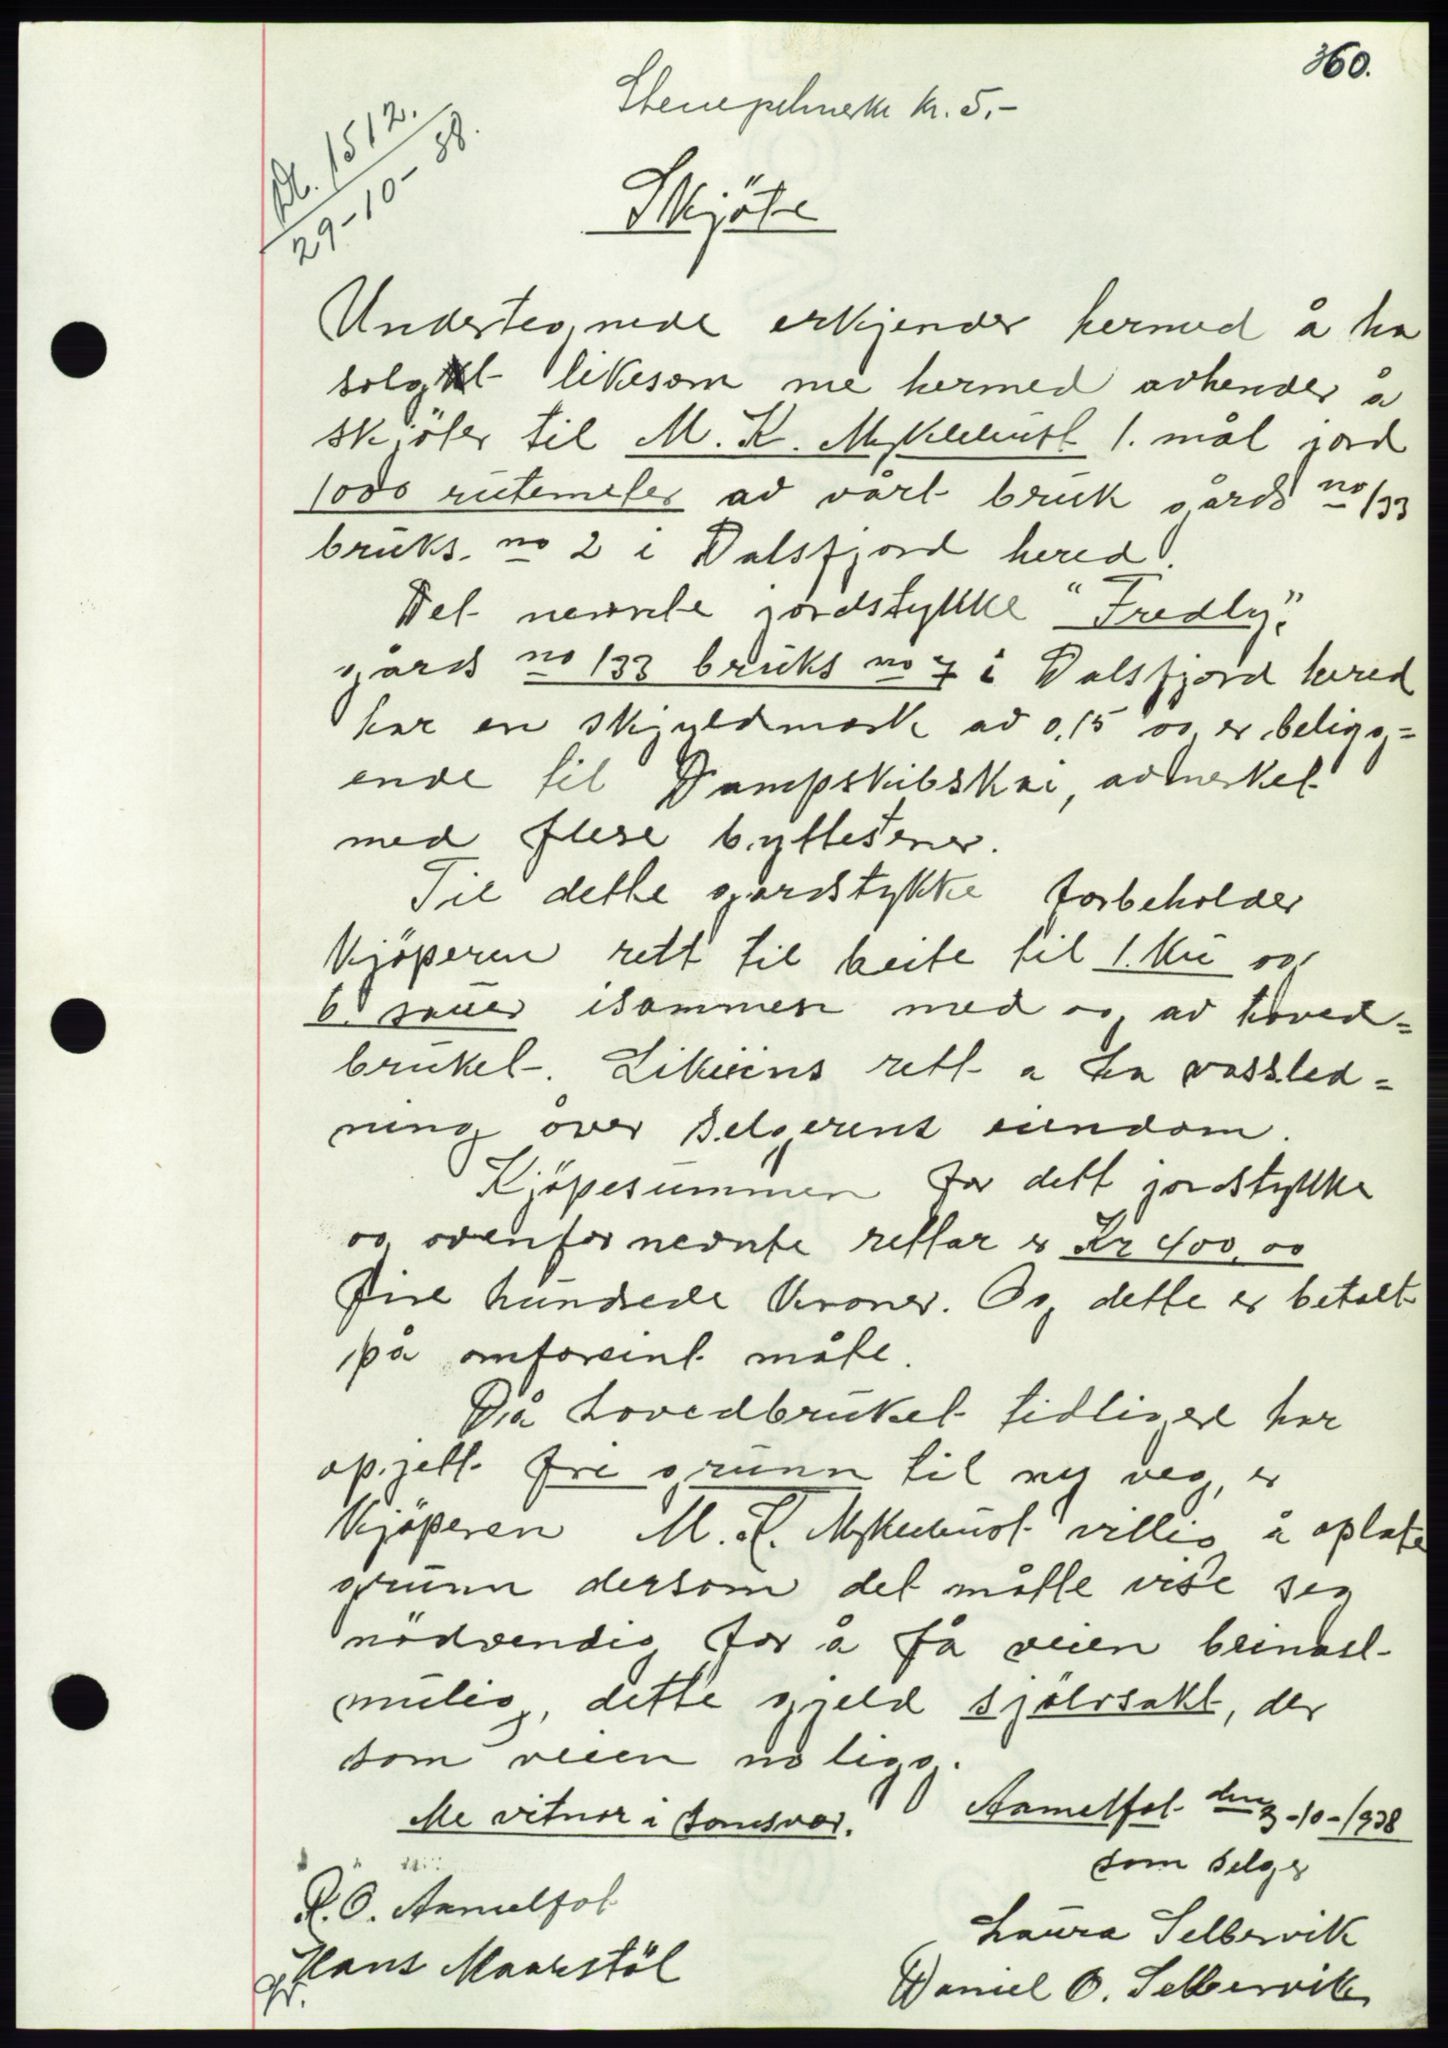 360.
Stempelmerke kr. 5.-
Db. 1512.
29-10-38.
Skjöte
Undertegnede erkjender hermed å ha
solgt likesom me hermed avhender å
skjöter til M. K. Myklebust 1. mål jord
1000 rutemeter av vårt bruk gårds no 133
bruks. no 2 i Dalsfjord hered.
Det nevnte jordstykke "Fredly",
gårds no 133 bruks no 7 i Dalsfjord hered
har en skjyldmark av 0,15 og er beligg=
ende til Dampskibskai, avmerket
med flere byttestener.
Til dette gordstykke forbeholder
kjöperen rett til beite til 1. ku og
6. sauer isammen med og av hoved=
bruket. Likeeins rett a ha vassled=
ning över selgerens eiendom.
Kjöpesummen for dett jordstykke
og ovenfor nevnte rettar er Kr 400,00
Fire hundrede kroner. Og dette er betalt
på omforeint måte.
Då hovedbruket tidligere har
opgjett fri grunn til ny veg, er
kjöperen M. K. Myklebust villig å oplate
grunn dersom det måtte vise seg
nödvendig for å få veien beinast
mulig, dette gjeld sjölvsakt, der
som veien no ligg.
Me vitnar i samsvar.
Aamelfot den 3-10-1938
som selger
R. O. Aamelfot
Laura Selbervik
Hans Maurstöl
Daniel O. Selbervik